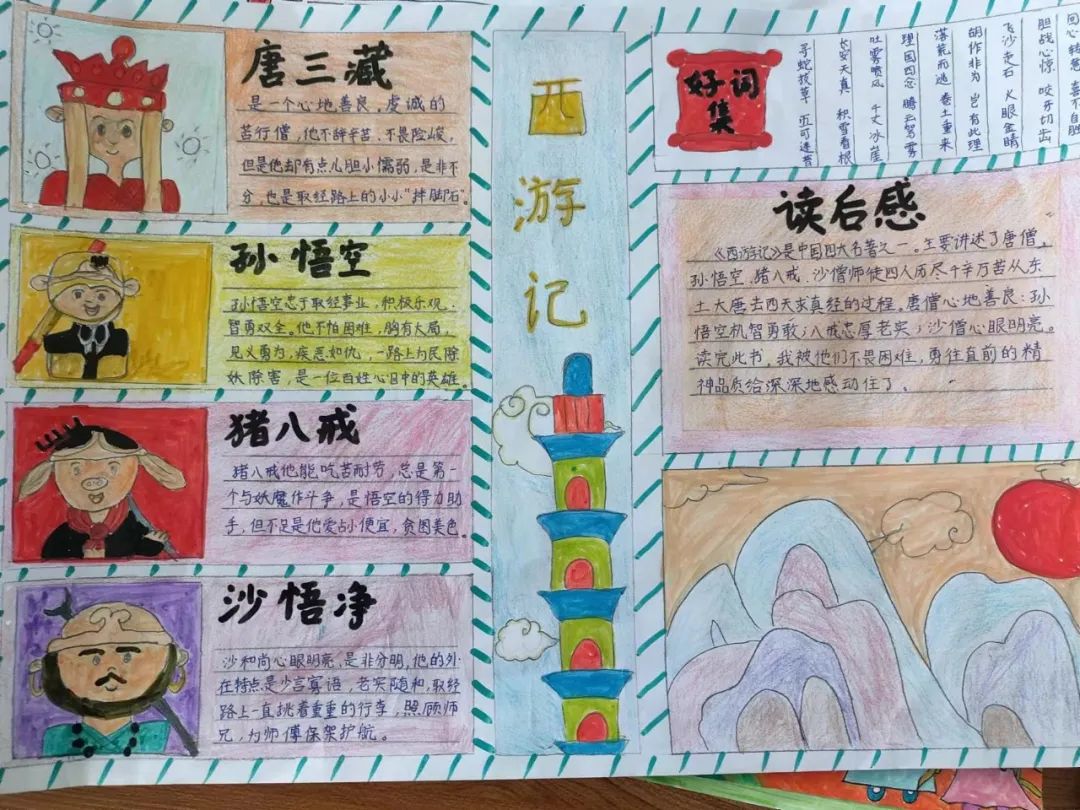 唐三藏
是一个心地善良,虔诚的
苦行僧,他不辞辛苦、不畏险峻,
但是他却有点儿胆小懦弱,是非不
分,也是取经路上的小小“拌脚石”。
孙悟空
孙悟空忠于取经事业,积极乐观、
智勇双全。他不怕困难,胸有大局,
见义勇为,疾恶如仇,一路上为民除
妖除害,是一位百姓心目中的英雄。
猪八戒
猪八戒他能吃苦耐劳,总是第一
个与妖魔作斗争,是悟空的得力助
手,但不足是他爱占小便宜,贪图美色。
沙悟净
沙和尚心眼明亮,是非分明,他的外
在特点是少言寡语,老实随和,取经
路上一直挑着重重的行李,照顾师
兄,为师傅保架护航。
西游记
好词集
喜不自胜
胆战心惊 咬牙切齿
飞沙走石 火眼金睛
胡作非为 岂有此理
落荒而逃 卷土重来
腾云驾雾
吐雾喷风 千丈冰崖
寻蛇拨草
读后感
《西游记》是中国四大名著之一。主要讲述了唐僧、
孙悟空、猪八戒、沙僧师徒四人历尽千辛万苦从东
土大唐去西天求真经的过程。唐僧心地善良;孙
悟空机智勇敢;八戒忠厚老实;沙僧心眼明亮。
读完此书,我被他们不畏困难,勇往直前的精
神品质给深深地感动住了。